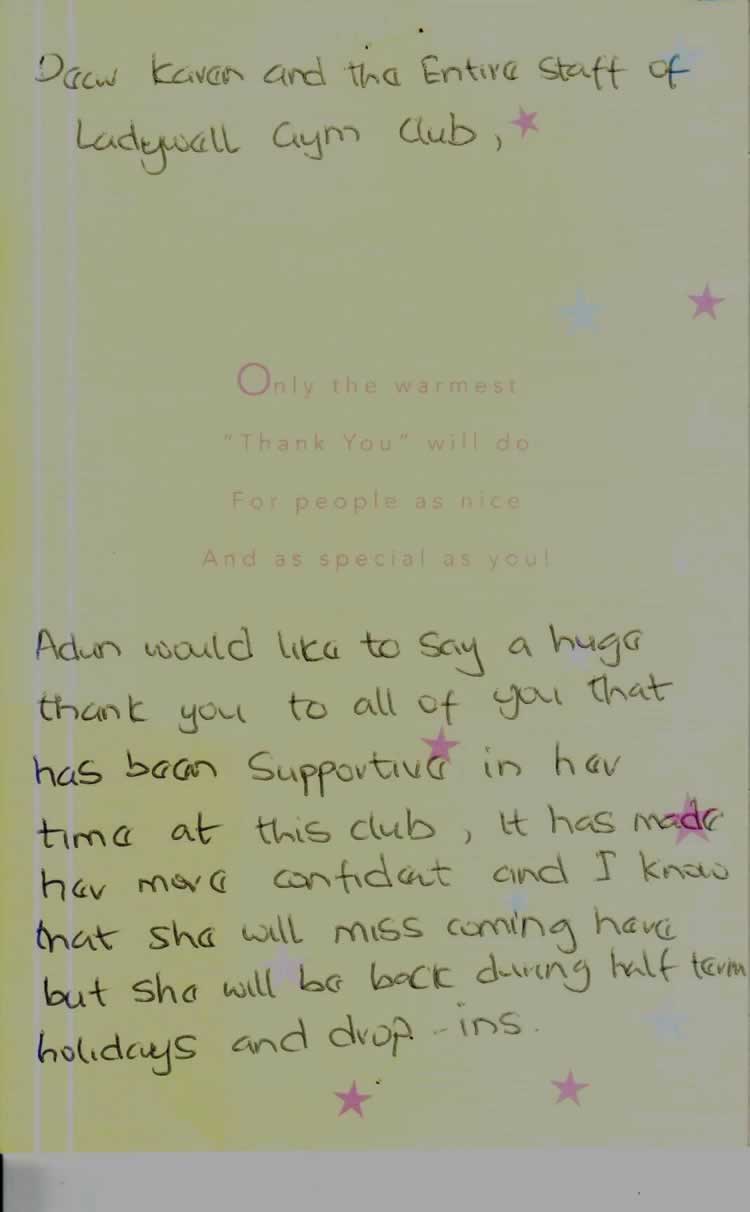 Dear Karen and the Entire Staff of
Ladywell Gym Club,
Only the warmest
"Thank You" will do
For people as nice
And as special as you!
Adun would like to say a huge
thank you to all of you that
has been Supportive in her
time at this club, It has made
her more confident and I know
that she will miss coming here
but she will be back during half term
holidays and drop-ins.